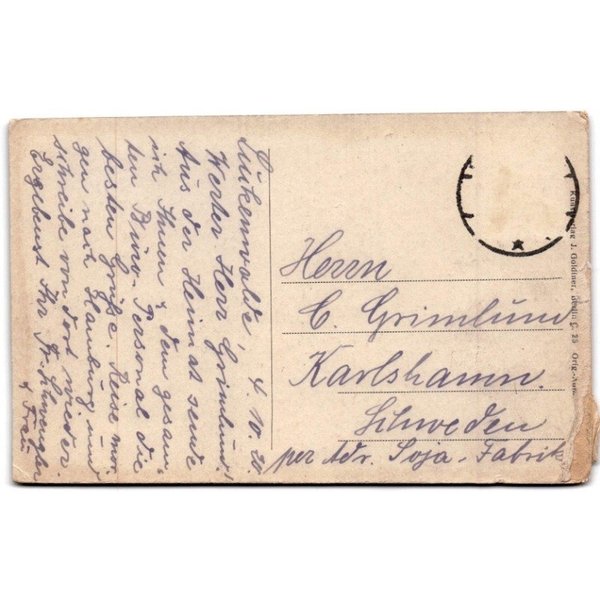 Luckenwalde, 4.10.20.
Werter Herr Grimlund!
Aus der Heimat sende
ich Ihnen u. dem gesam-
ten Büro-Personal die
besten Grüße. Reise mor-
gen nach Hamburg und
schreibe von dort wieder.
Ergebenst Ihr
u. Frau
Herrn
C. Grimlund
Karlshamn.
Schweden
per Adr. Soja-Fabrik
J. Goldiner, Berlin C. 25